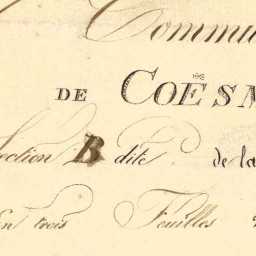 Commu
DE COËSM
Section B dite de la
En trois Feuilles